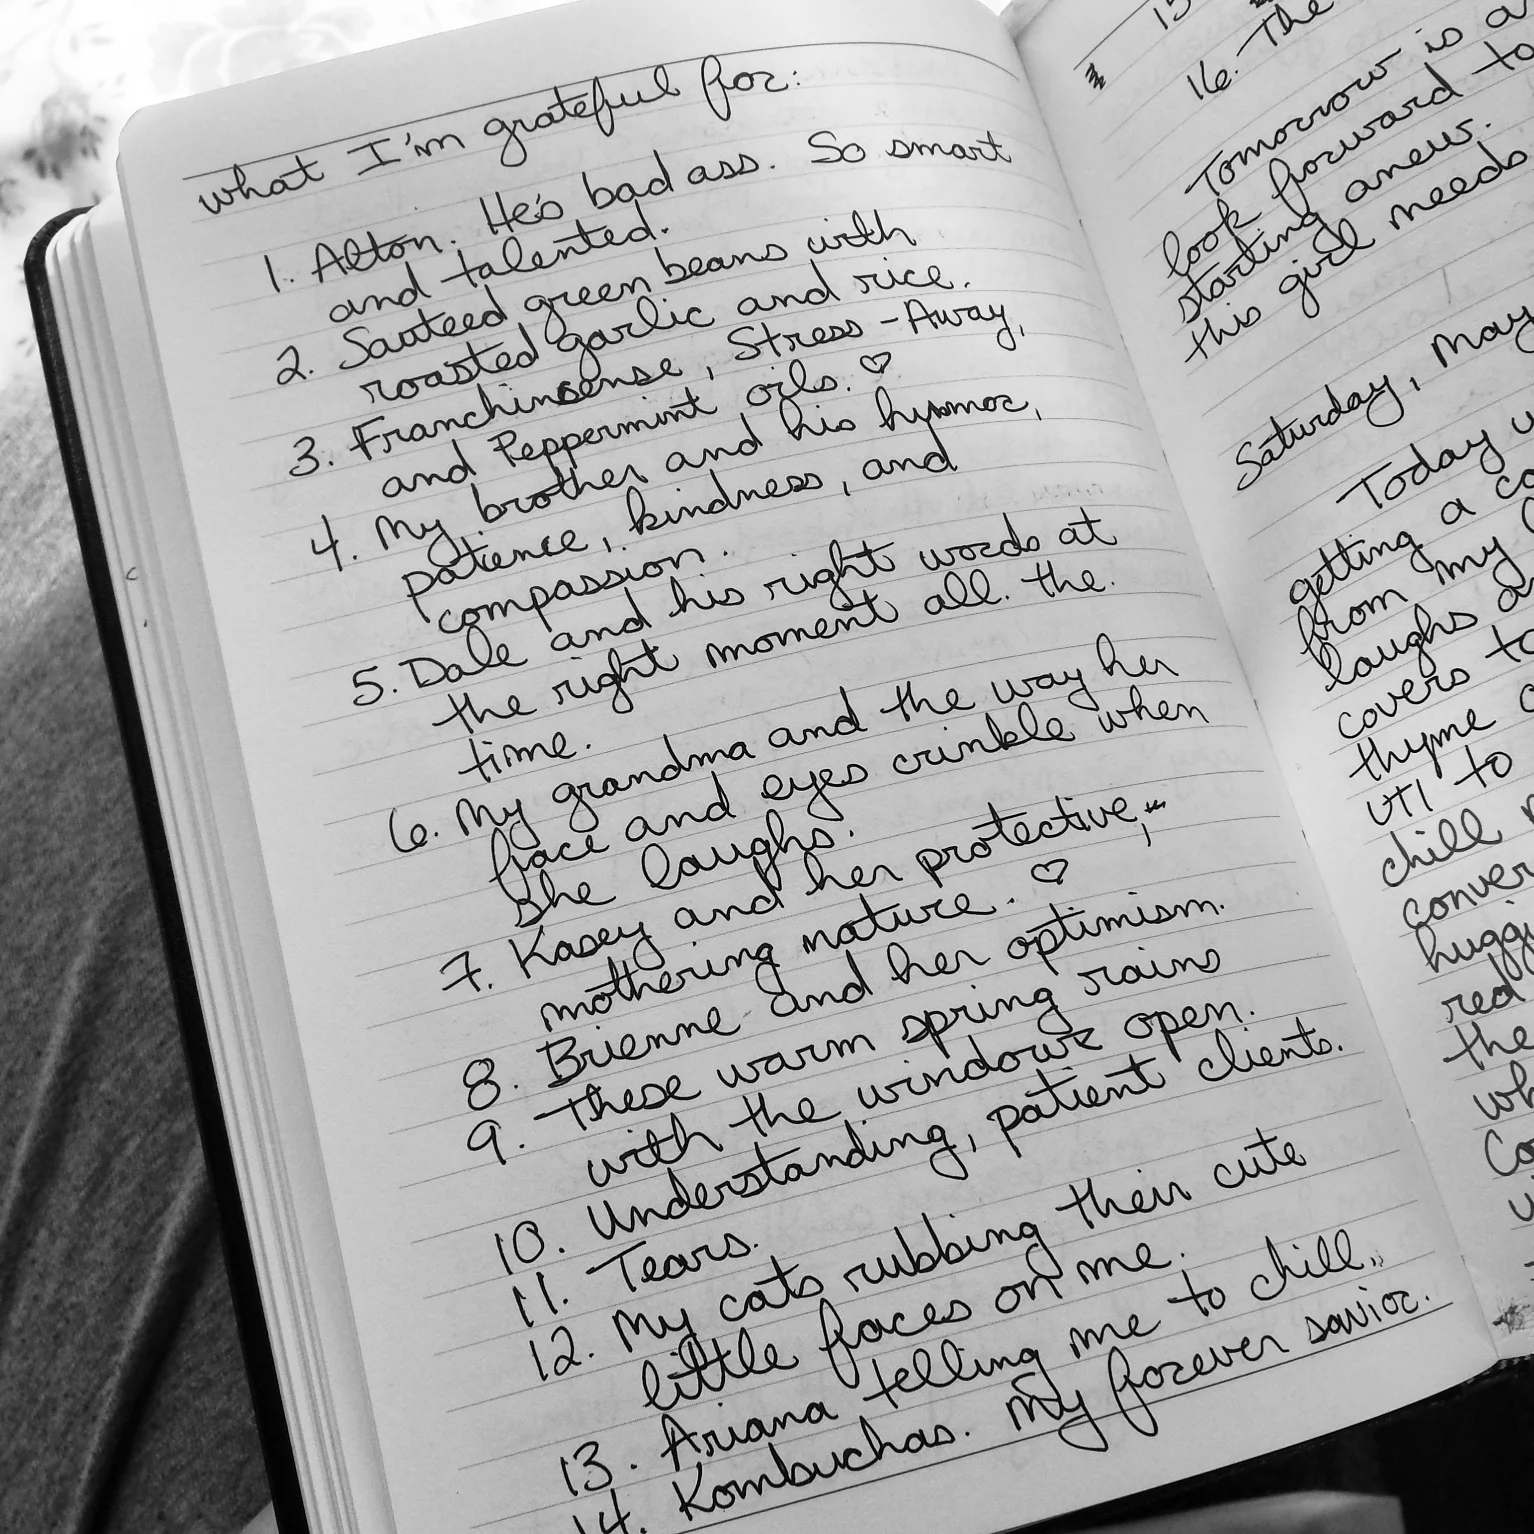 what I'm grateful for:
1. Alton. He's bad ass. So smart
and talented.
2. Sauteed green beans with
roasted garlic and rice.
3. Franchinsense, Stress-Away,
and Peppermint oils. ♡
4. My brother and his hummor,
patience, kindness, and
compassion.
5. Dale and his right words at
the right moment all. the.
time.
6. My grandma and the way her
face and eyes crinkle when
she laughs.
7. Kasey and her protective,
mothering nature. ♡
8. Brienne and her optimism.
9. These warm spring rains
with the windows open.
10. Understanding, patient clients.
11. Tears.
12. My cats rubbing their cute
little faces on me.
13. Ariana telling me to chill.
14. Kombuchas. My forever savior.
15
16. The
Tomorrow is a
look forward to
starting anew.
this girl needs
Saturday, May
Today
getting a
from my
laughs
covers to
thyme
UTI to
chill
red
the